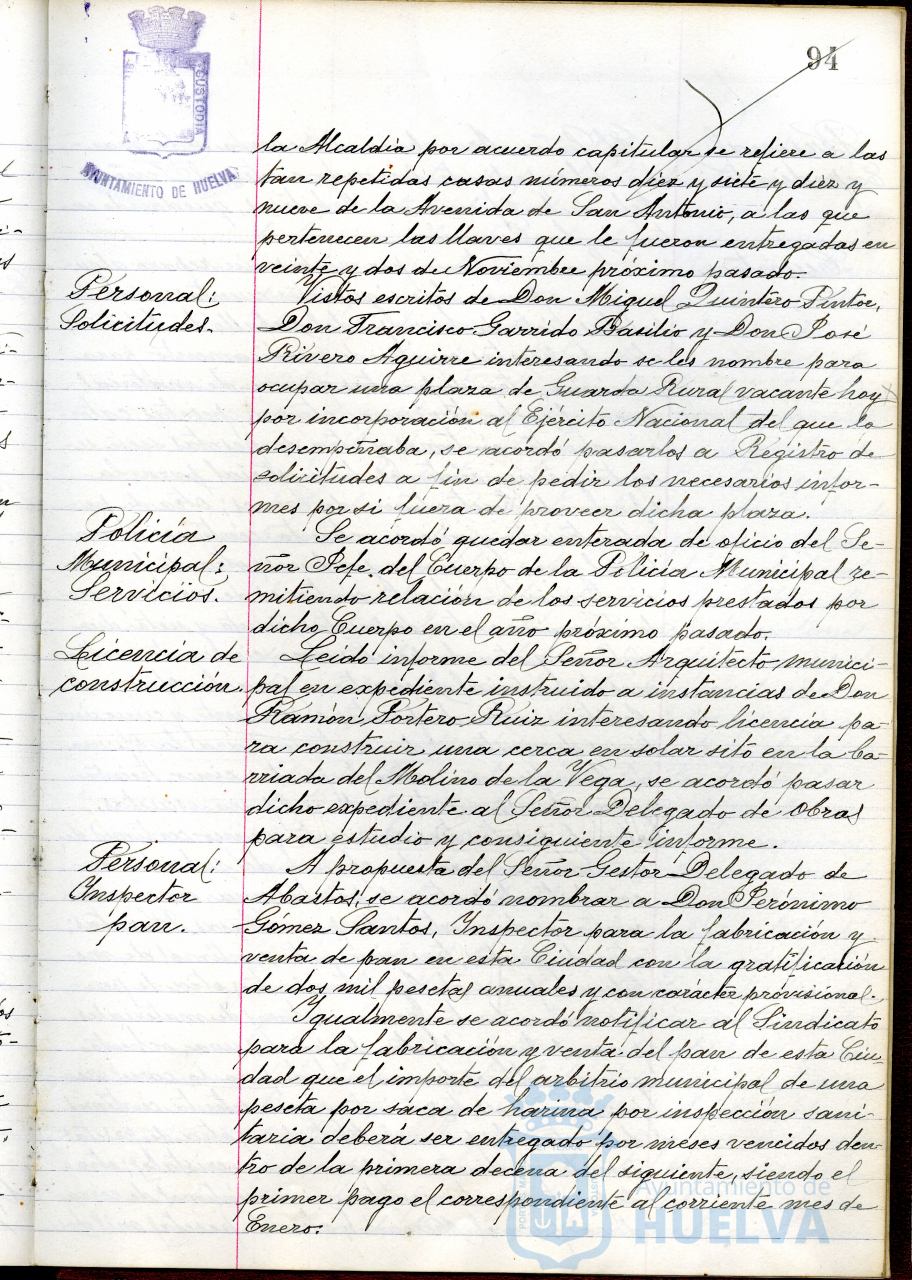 94
CUSTODIA
AYUNTAMIENTO DE HUELVA
la Alcaldía por acuerdo capitular se refiere a las
tan repetidas casas números diez y siete y diez y
nueve de la Avenida de San Antonio, a las que
pertenecen las llaves que le fueron entregadas en
veinte y dos de Noviembre próximo pasado.
Personal:
Solicitudes.
Vistos escritos de Don Miguel Quintero Pintor,
Don Francisco Garrido Basilio y Don José
Rivero Aguirre interesando se les nombre para
ocupar una plaza de Guarda Rural vacante hoy
por incorporación al Ejército Nacional del que la
desempeñaba, se acordó pasarlos a Registro de
solicitudes a fin de pedir los necesarios infor-
mes por si fuera de proveer dicha plaza.
Policía
Municipal:
Servicios.
Se acordó quedar enterada de oficio del Se-
ñor Jefe del Cuerpo de la Policía Municipal re-
mitiendo relación de los servicios prestados por
dicho Cuerpo en el año próximo pasado.
Licencia de
construcción.
Leido informe del Señor Arquitecto munici-
pal en expediente instruido a instancias de Don
Ramón Portero Ruiz interesando licencia pa-
ra construir una cerca en solar sito en la Ba-
rriada del Molino de la Vega, se acordó pasar
dicho expediente al Señor Delegado de Obras
para estudio y consiguiente informe.
Personal:
Inspector
pan.
A propuesta del Señor Gestor Delegado de
Abastos, se acordó nombrar a Don Jerónimo
Gómez Santos, Inspector para la fabricación y
venta de pan en esta Ciudad con la gratificación
de dos mil pesetas anuales y con carácter próvisional.
Igualmente se acordó notificar al Sindicato
para la fabricación y venta del pan de esta Ciu-
dad que el importe del arbitrio municipal de una
peseta por saca de harina por inspección sani-
taria deberá ser entregado por meses vencidos den-
tro de la primera decena del siguiente, siendo el
primer pago el correspondiente al corriente mes de
Enero.
Ayuntamiento de
HUELVA